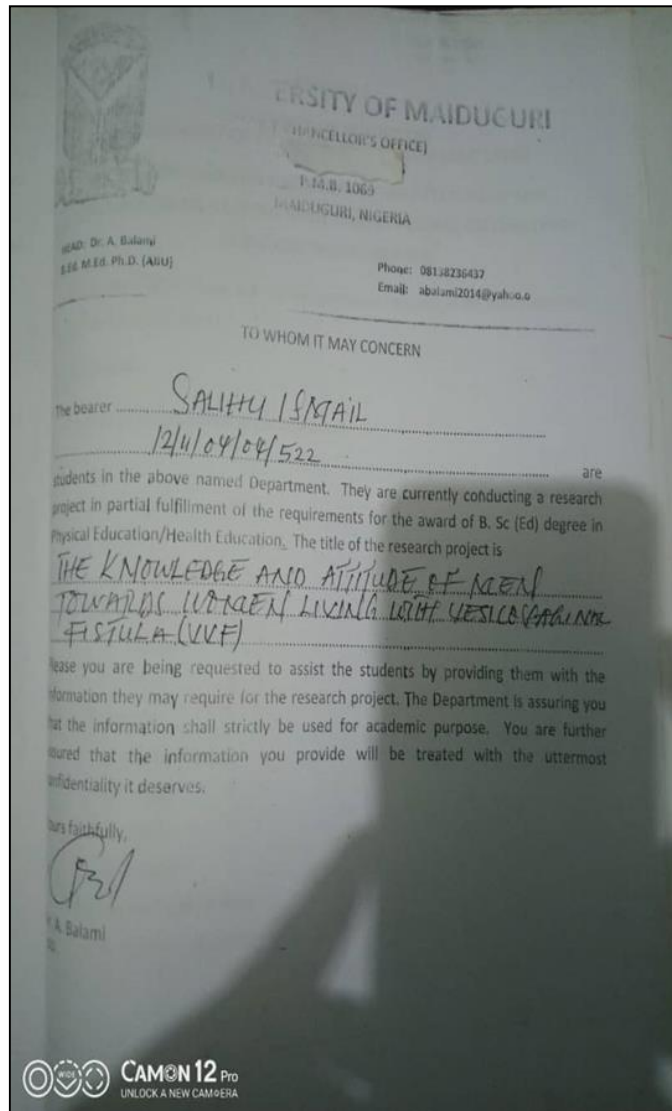 ERSITY OF MAIDUGURI
HANCELLOR'S OFFICE)
P.M.B. 1069
MAIDUGURI, NIGERIA
HEAD: Dr. A. Balami
B.Ed. M.Ed. Ph.D. (ABU)
Phone: 08138236437
Email: abalami2014@yahoo.o
TO WHOM IT MAY CONCERN
The bearer SALIHU ISMAIL
12/11/04/04/522
are
students in the above named Department. They are currently conducting a research
project in partial fulfillment of the requirements for the award of B. Sc (Ed) degree in
Physical Education/Health Education. The title of the research project is
THE KNOWLEDGE AND ATTITUDE OF MEN
TOWARDS WOMEN LIVING WITH VESICOVAGINAL
FISTULA (VVF)
lease you are being requested to assist the students by providing them with the
nformation they may require for the research project. The Department is assuring you
hat the information shall strictly be used for academic purpose. You are further
ssured that the information you provide will be treated with the uttermost
onfidentiality it deserves.
ours faithfully,
A. Balami
WIDE
CAMON 12 Pro
UNLOCK A NEW CAMERA